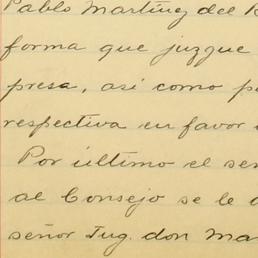 Pablo Martínez del R
forma que juzgue
presa, así como p
respectiva en favor
Por último el se
al Consejo se le
señor Ing. don Ma